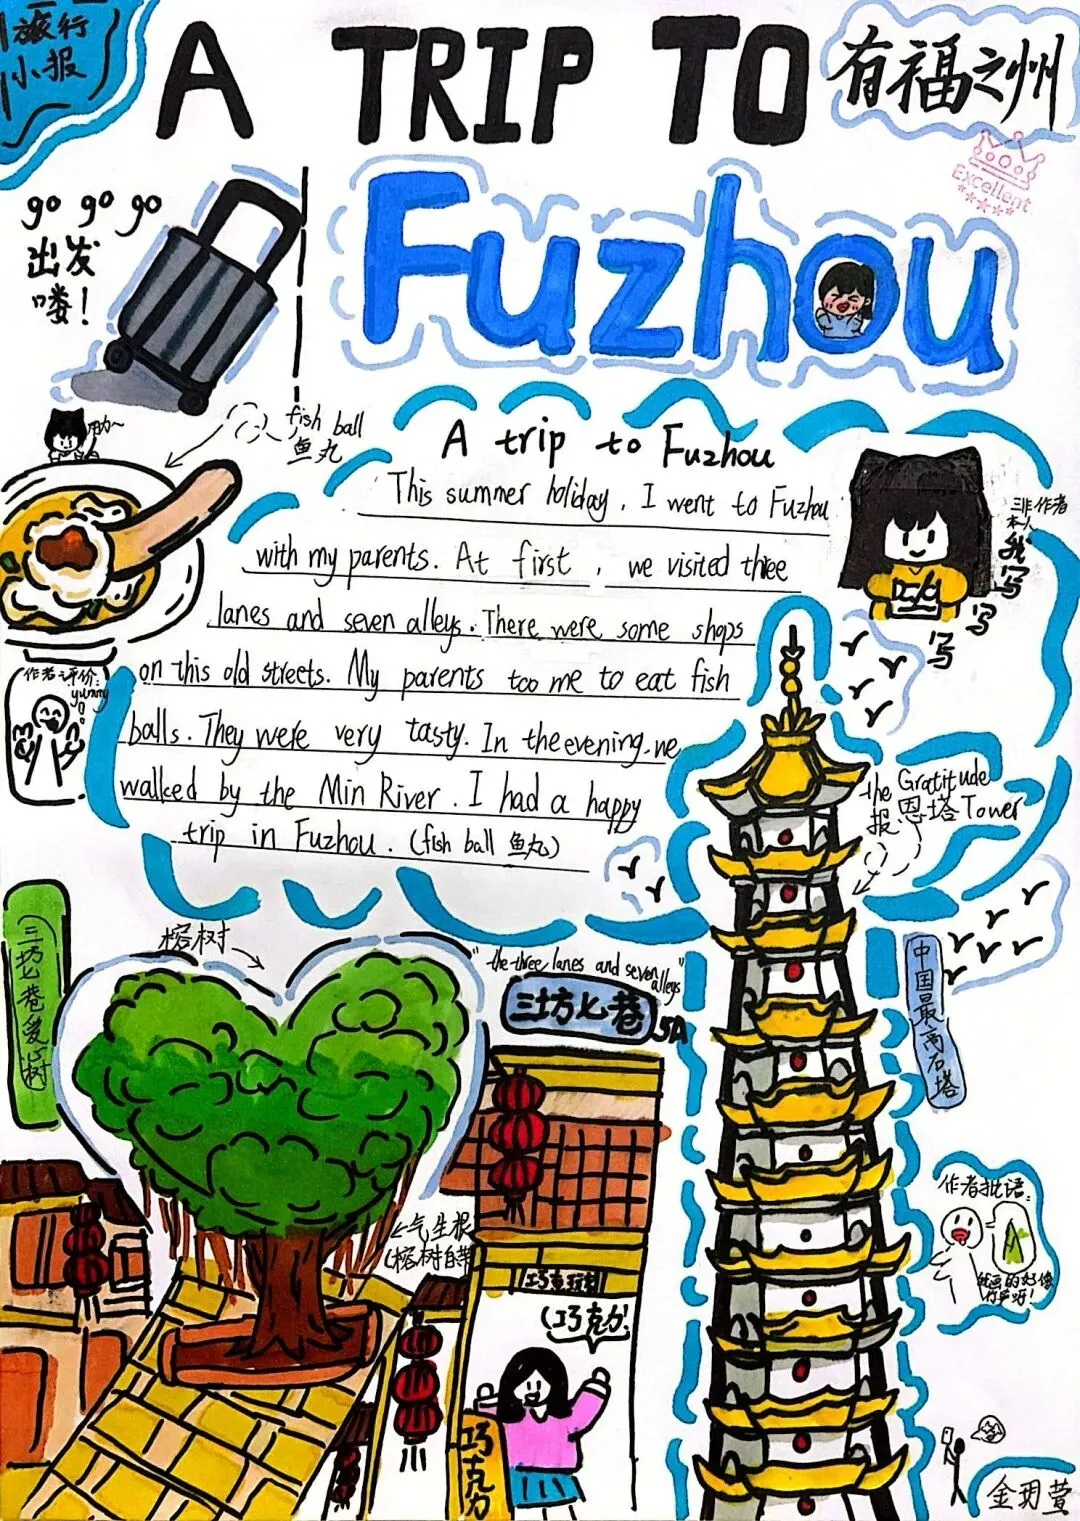 旅行
小报
A TRIP TO
有福之州
Excellent
Fuzhou
go go go
出发
喽!
fish ball
鱼丸
A trip to Fuzhou
This summer holiday, I went to Fuzhou
with my parents. At first , we visited three
lanes and seven alleys. There were some shops
on this old streets. My parents too me to eat fish
balls. They were very tasty. In the evening, we
walked by the Min River. I had a happy
trip in Fuzhou. (fish ball 鱼丸)
非作者
本人
我写写写
作者评价:
yummy
the Gratitude
报恩塔 Tower
榕树
"the three lanes and seven
alleys"
三坊七巷
5A
三坊七巷爱树
中国最高石塔
←气生根
(榕树自带
作者批语:
巧克力!
巧克力
金玥萱